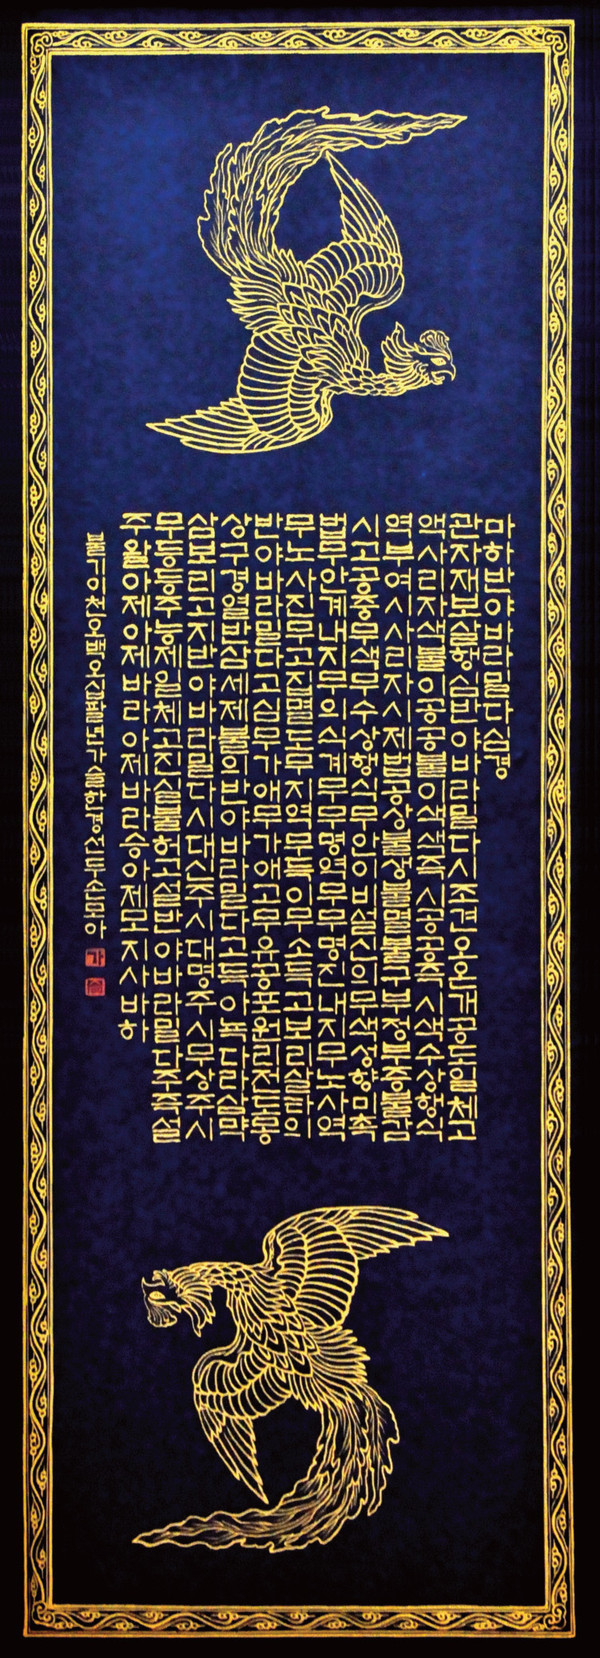 마하반야바라밀다심경
관자재보살행심반야바라밀다시조견오온개공도일체고
액사리자색불이공공불이색색즉시공공즉시색수상행식
역부여시사리자시제법공상불생불멸불구부정부증불감
시고공중무색무수상행식무안이비설신의무색성향미촉
법무안계내지무의식계무무명역무무명진내지무노사역
무노사진무고집멸도무지역무득이무소득고보리살타의
반야바라밀다고심무가애무가애고무유공포원리전도몽
상구경열반삼세제불의반야바라밀다고득아뇩다라삼먁
삼보리고지반야바라밀다시대신주시대명주시무상주시
무등등주능제일체고진실불허고설반야바라밀다주즉설
주왈아제아제바라아제바라승아제모지사바하
불기이천오백오십팔년가을한경선두손모아